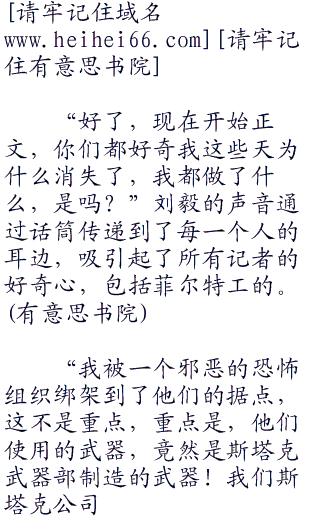 [请牢记住域名
www.heihei66.com][请牢记
住有意思书院]
“好了，现在开始正
文，你们都好奇我这些天为
什么消失了，我都做了什
么，是吗？”刘毅的声音通
过话筒传递到了每一个人的
耳边，吸引起了所有记者的
好奇心，包括菲尔特工的。
(有意思书院)
“我被一个邪恶的恐怖
组织绑架到了他们的据点，
这不是重点，重点是，他们
使用的武器，竟然是斯塔克
武器部制造的武器！我们斯
塔克公司